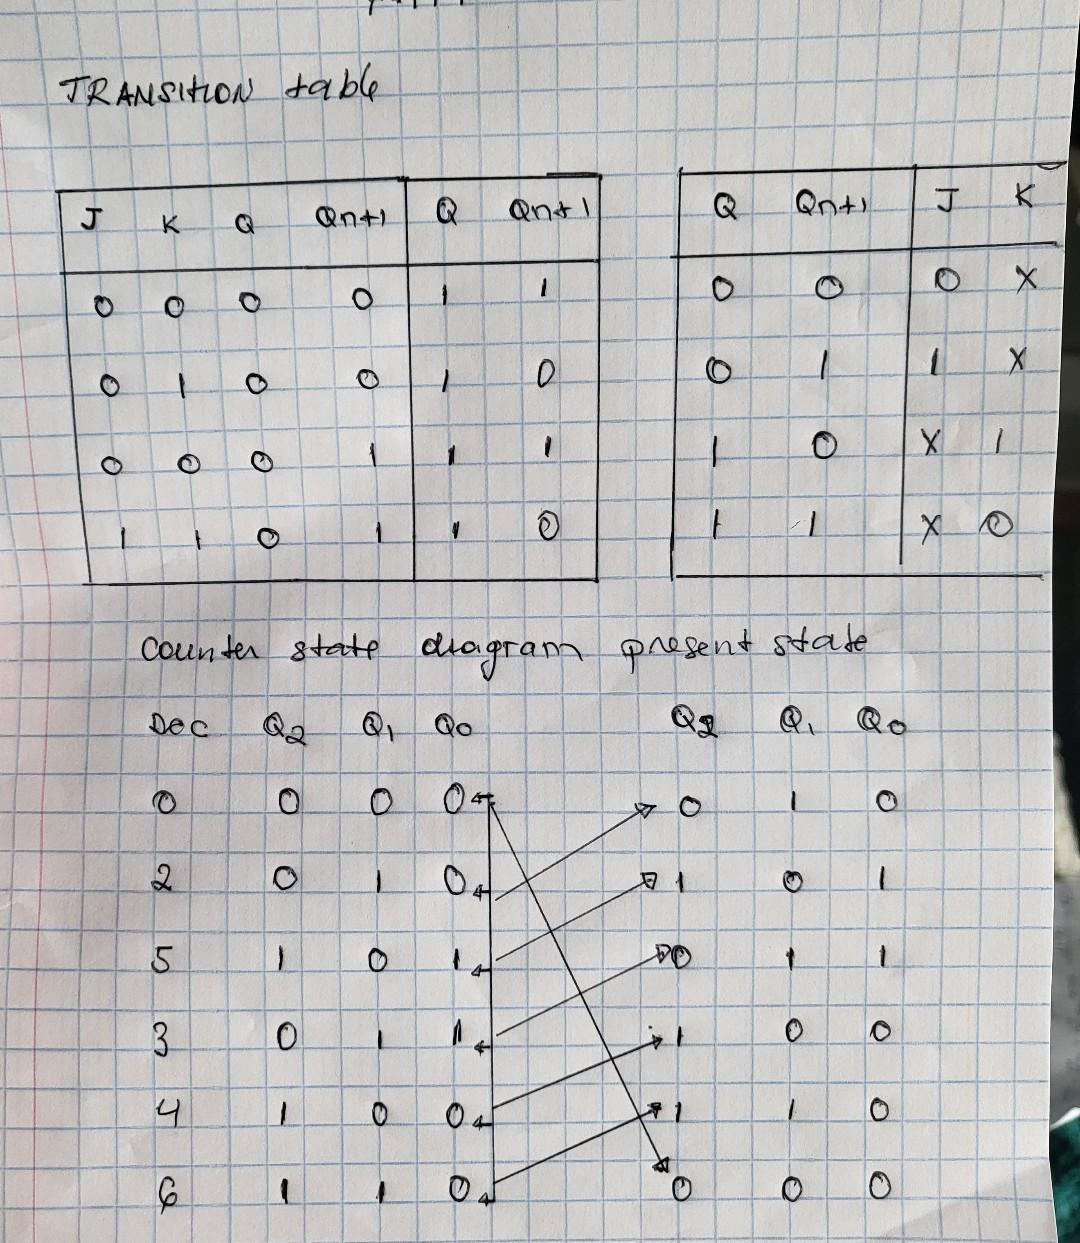 TRANSITION table
J K Q Qn+1 Q Qn+1 Q Qn+1 J K
0 0 0 0 1 1 0 0 0 X
0 1 0 0 1 0 0 1 1 X
0 0 0 1 1 1 1 0 X 1
1 1 0 1 1 0 1 1 X 0
Counter state diagram present state
DEC Q2 Q1 Q0 Q2 Q1 Q0
0 0 0 0 0 1 0
2 0 1 0 1 0 1
5 1 0 1 0 1 1
3 0 1 1 1 0 0
4 1 0 0 1 1 0
6 1 1 0 0 0 0